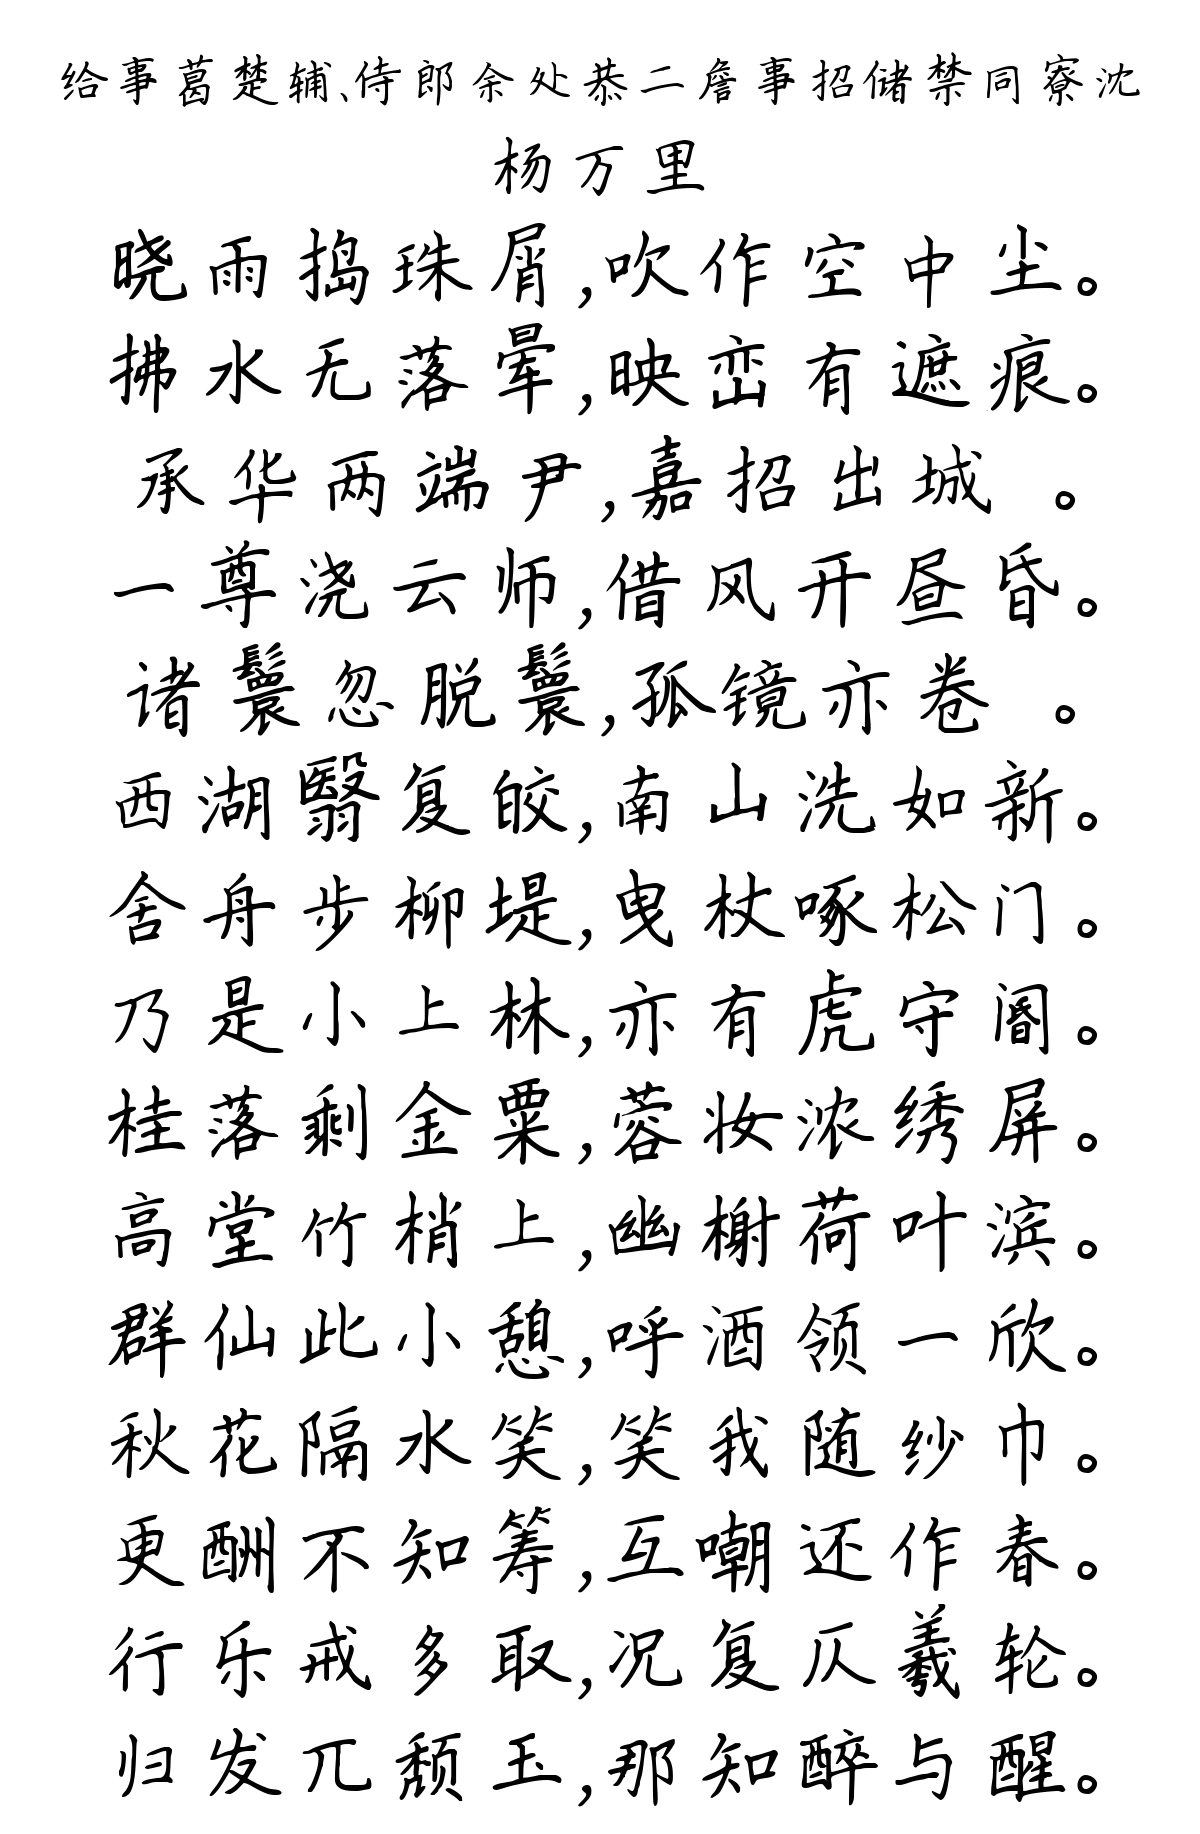 给事葛楚辅、侍郎余处恭二詹事招储禁同寮沈
杨万里
晓雨捣珠屑,吹作空中尘。
拂水无落晕,映峦有遮痕。
承华两端尹,嘉招出城 。
一尊浇云师,借风开昼昏。
诸鬟忽脱鬟,孤镜亦卷 。
西湖翳复皎,南山洗如新。
舍舟步柳堤,曳杖啄松门。
乃是小上林,亦有虎守阍。
桂落剩金粟,蓉妆浓绣屏。
高堂竹梢上,幽榭荷叶滨。
群仙此小憩,呼酒领一欣。
秋花隔水笑,笑我随纱巾。
更酬不知筹,互嘲还作春。
行乐戒多取,况复仄羲轮。
归发兀颓玉,那知醉与醒。